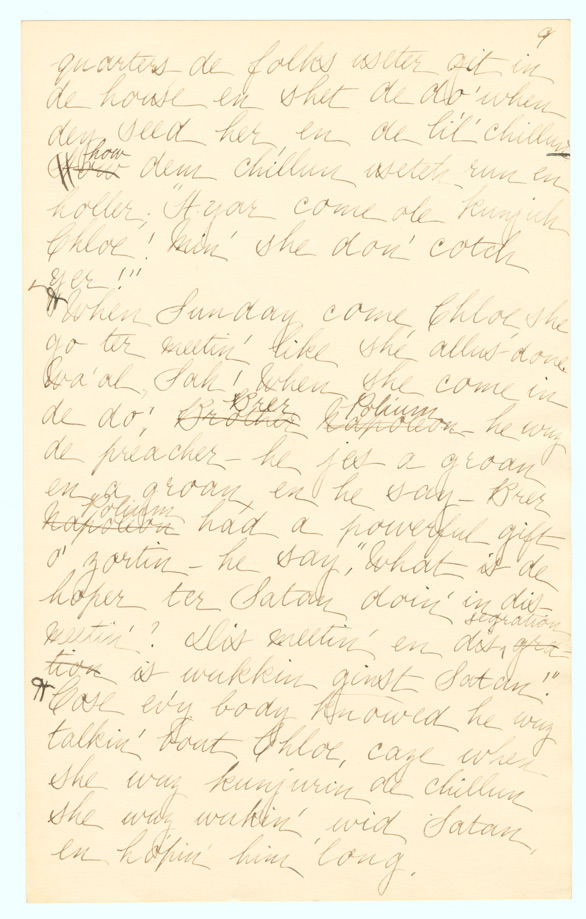 9
quarters de folks useter git in
de house en shet de do' when
dey seed her en de lil' chillun
how
How dem chillun useteh run en
holler, "Hyar come ole kunjuh
Chloe! Min' she don' cotch
yer!"
When Sunday come, Chloe, she
go ter meetin' like she allus done.
Wa'al, Sah! When she come in
Brer Polium
de do', Brother Napoleon - he wuz
de preacher - he jes a groan
en a groan, en he say - Brer
Polium
Napoleon had a powerful gift
o' zortin - he say, "What is de
hoper ter Satan doin' in dis
segration
meetin'? Dis meetin' en dis gra-
tion is wukkin ginst Satan!"
Cose ev'y body knowed he wuz
talkin' bout Chloe, caze when
she wuz kunjurin de chillun
she wuz wukin' wid Satan,
en ho'pin' him 'long.